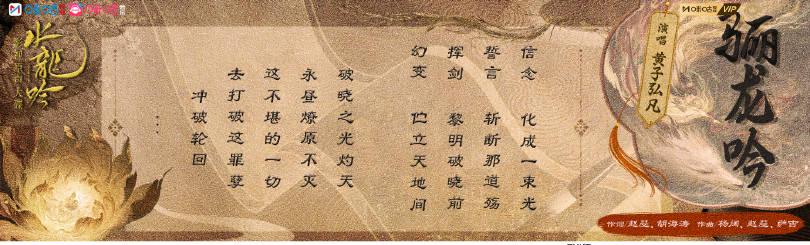 咪咕音乐 VIP
骊龙吟
演唱 黄子弘凡
水龙吟
信念 化成一束光
誓言 斩断那道殇
挥剑 黎明破晓前
幻变 伫立天地间
破晓之光灼天
永昼燎原不灭
这不堪的一切
去打破这罪孽
冲破轮回
...
作词 赵磊、胡海涛 作曲 杨阔、赵磊、萨吉